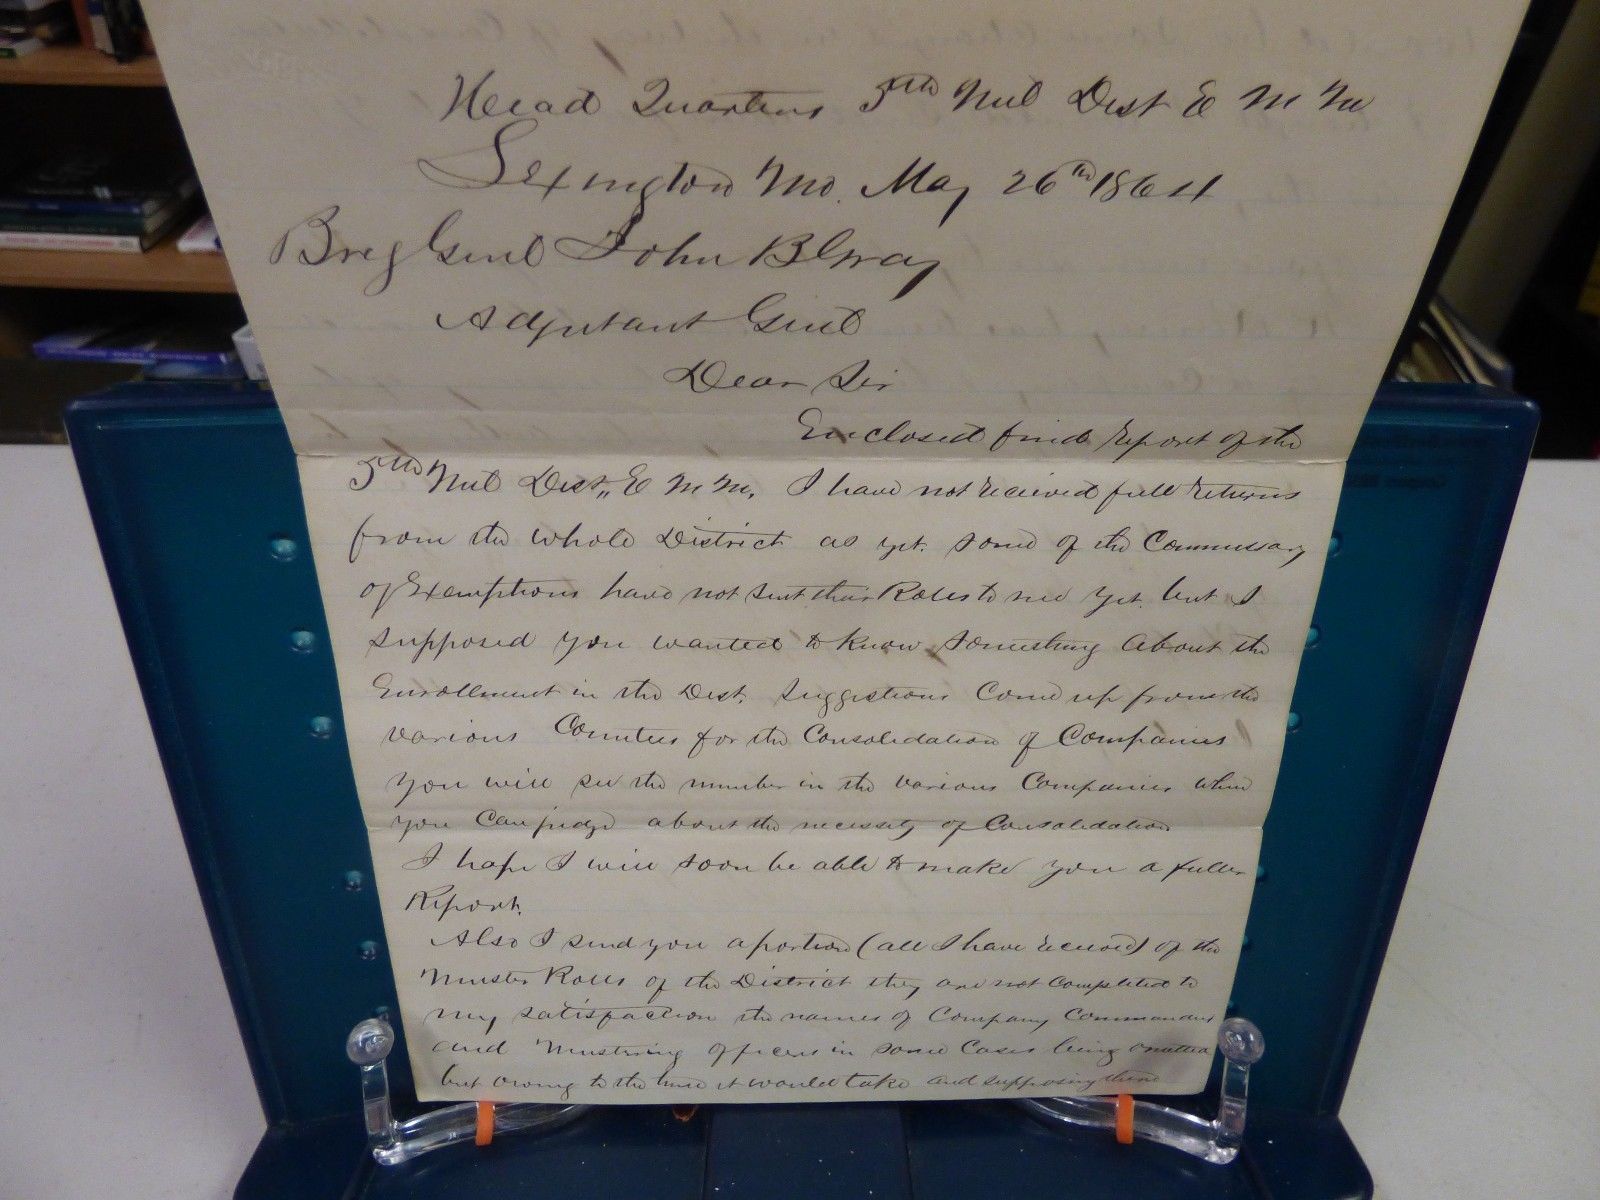 Head Quarters 5th Mil Dist E M M
Lexington Mo. May 26th 1864
Brig Genl John B Gray
Adjutant Genl
Dear Sir
Enclosed find report of the
5th Mil Dist, E M M, I have not recieved full returns
from the whole District as yet. some of the Commissary
of Exemptions have not sent their Rolls to me yet. but I
supposed you wanted to know something about the
Enrollment in the Dist. Suggestions Come up from the
various Counties for the Consolidation of Companies
you will see the number in the various Companies when
you Can judge about the necessity of Consolidation
I hope I will soon be able to make you a fuller
Report.
Also I send you a portion (all I have recieved) of the
Muster Rolls of the District they are not completed to
my satisfaction the names of Company Commanders
and Mustering officers in some Cases being omitted
but owing to the time it would take and supposing there